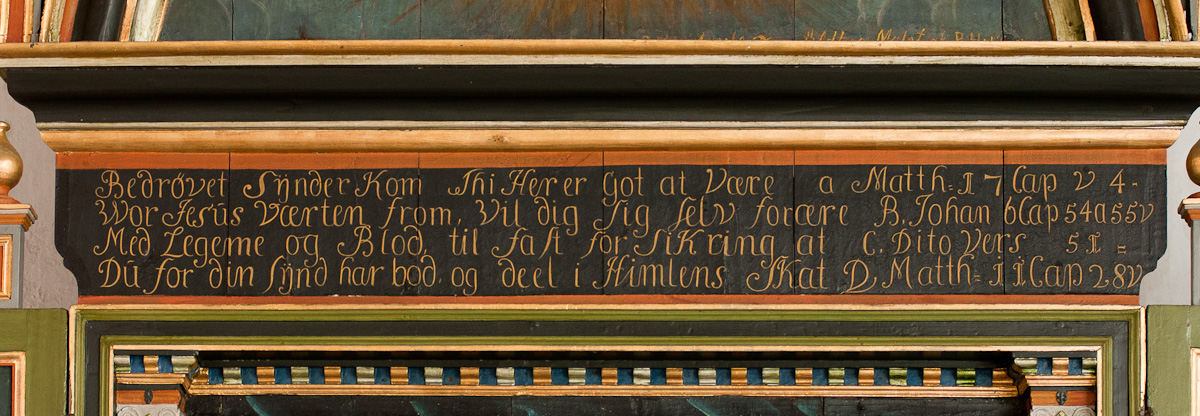 Bedrøvet Sÿnder Kom Thi Her er Got at Være a Matth= 17 Cap V 4.
Wor Jesús Værten from, Vil dig sig selv forære B. Johan 6 Cap 54 a 55 v
Med Legeme og Blod, til fast forsiKring at C. Dito Vers 51=
Du for din Sÿnd har bod, og deel i Himlens Skat D. Matth= 11 Cap 28 v